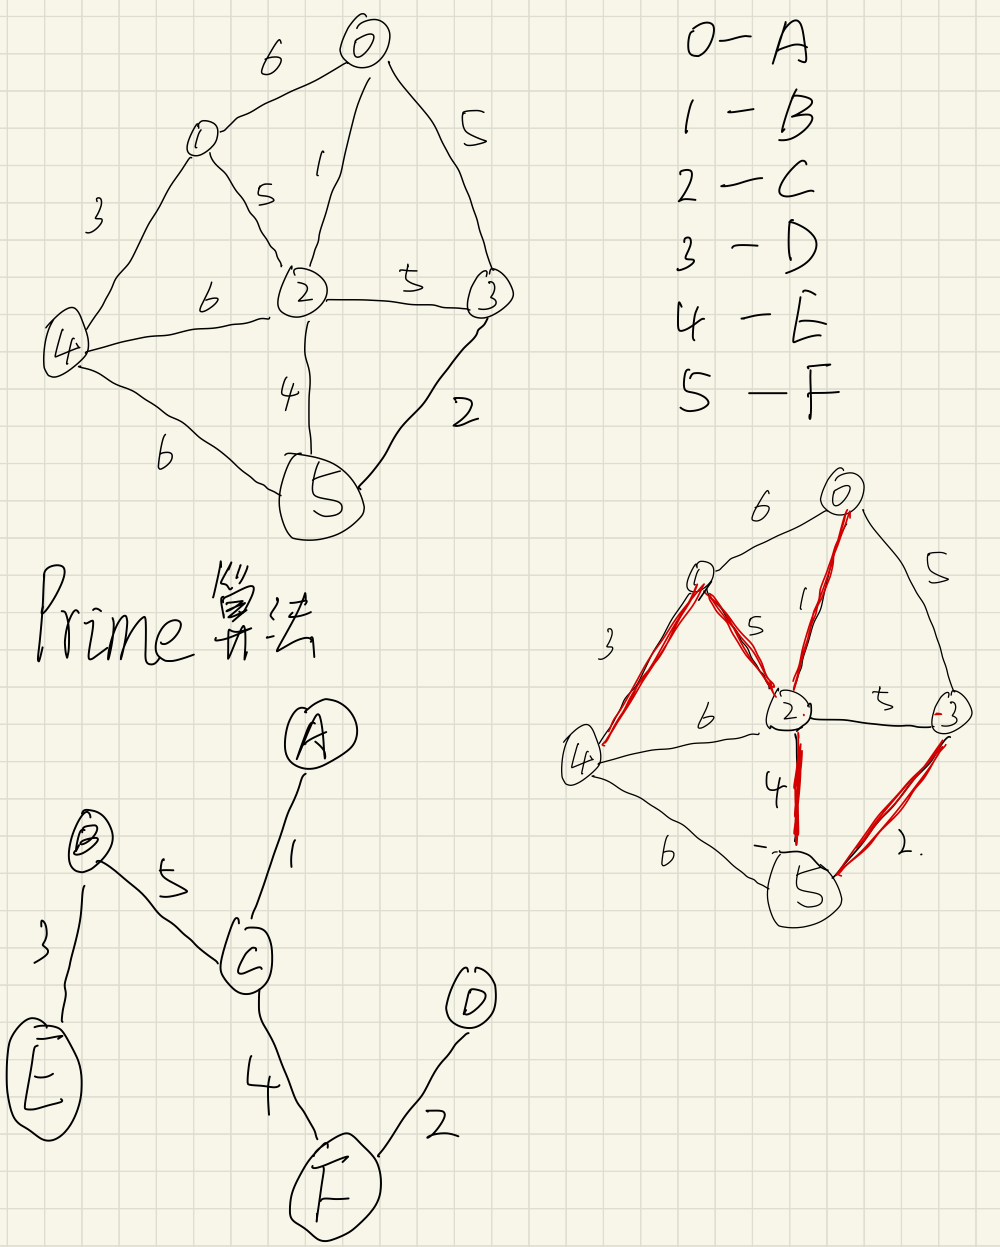 0
6
5
1
1
5
3
2
5
3
6
4
4
2
6
5
0—A
1—B
2—C
3—D
4—E
5—F
Prime 算法
0
6
5
1
1
5
3
2
5
3
6
4
4
2.
6
5
A
B
1
5
3
C
D
E
4
2
F